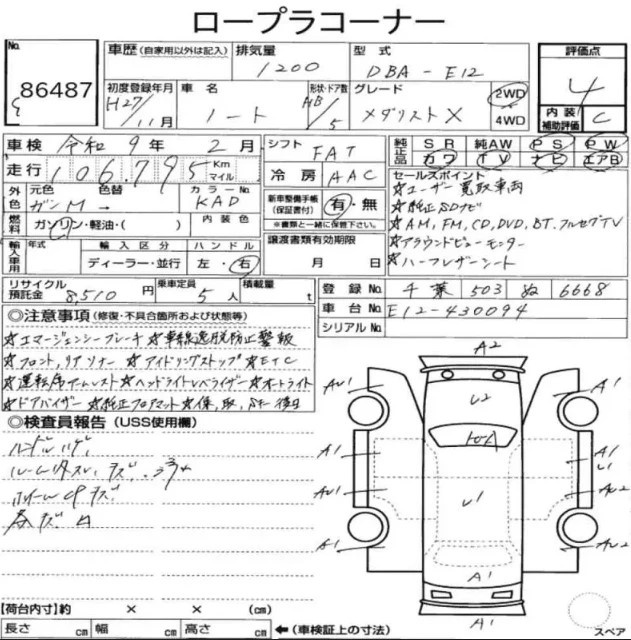 ロープラコーナー
No. 86487
車歴 (自家用以外は記入)
排気量 1200
型式 DBA-E12
評価点 4
内装補助評価 C
初度登録年月 H27/11月
車名 ノート
形状・ドア数 HB/5
グレード メダリストX
2WD
4WD
車検 令和 9年 2月
走行 106,795 Km マイル
外色 元色 ガンM 色替 カラーNo. KAD
燃料 ガソリン・軽油・( ) 内装色
輸入車用 年式 輸入区分 ハンドル
ディーラー・並行 左・右
リサイクル預託金 8,510円 乗車定員 5人 積載量 t
シフト FAT
冷房 AAC
新車整備手帳(保証書付) 有・無
※書類と一緒に保管下さい。
譲渡書類有効期限
月 日
純正品 SR 純AW PS PW
カワ TV ナビ エアB
セールスポイント
☆ユーザー買取車両
☆純正SDナビ
☆AM,FM,CD,DVD,BT.フルセグTV
☆アラウンドビューモニター
☆ハーフレザーシート
登録No. 千葉 503 ぬ 6668
車台No. E12-430094
シリアルNo.
◎注意事項 (修復・不具合箇所および状態等)
☆エマージェンシーブレーキ ☆車線逸脱防止警報
☆フロント,リアソナー ☆アイドリングストップ ☆ETC
☆運転席アームレスト ☆ヘッドライトレベライザー ☆オートライト
☆ドアバイザー ☆純正フロアマット ☆保,取, 後日
◎検査員報告 (USS使用欄)
ハンドルハゲ
キズ
A2
AU1
A1
U2
A1
A1
U1
AU1
U1
AU2
A1
AU2
A1
A1
【荷台内寸】約 × × (cm)
長さ cm 幅 cm 高さ cm ←(車検証上の寸法)
スペア